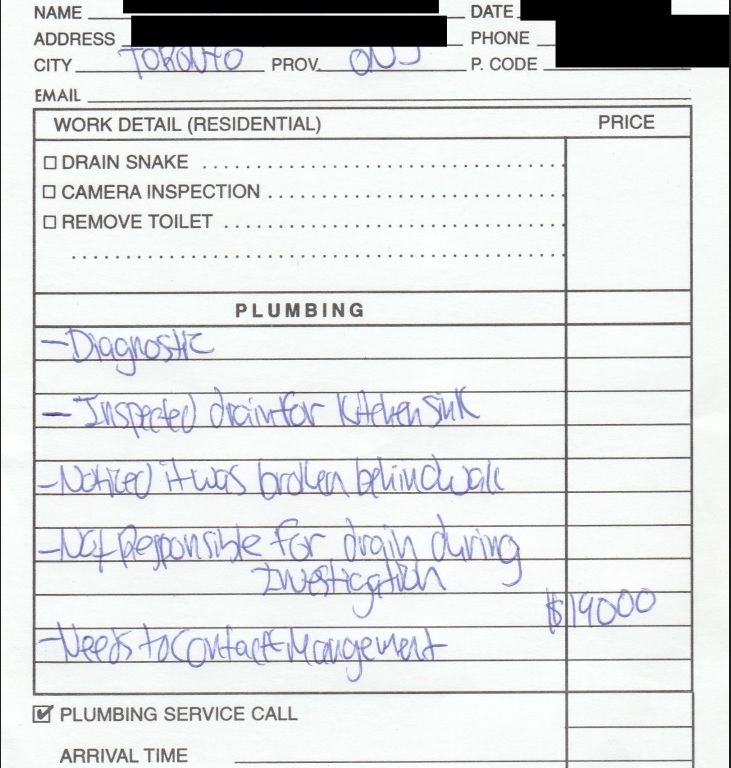 NAME DATE
ADDRESS PHONE
CITY TORONTO PROV. ONT P. CODE
EMAIL
WORK DETAIL (RESIDENTIAL) PRICE
DRAIN SNAKE
CAMERA INSPECTION
REMOVE TOILET
PLUMBING
- Diagnostic
- Inspected drain for Kitchen sink
- Noticed it was broken behind wall
- Not Responsible for drain during
Investigation
$19000
- Needs to contact Mangement
PLUMBING SERVICE CALL
ARRIVAL TIME